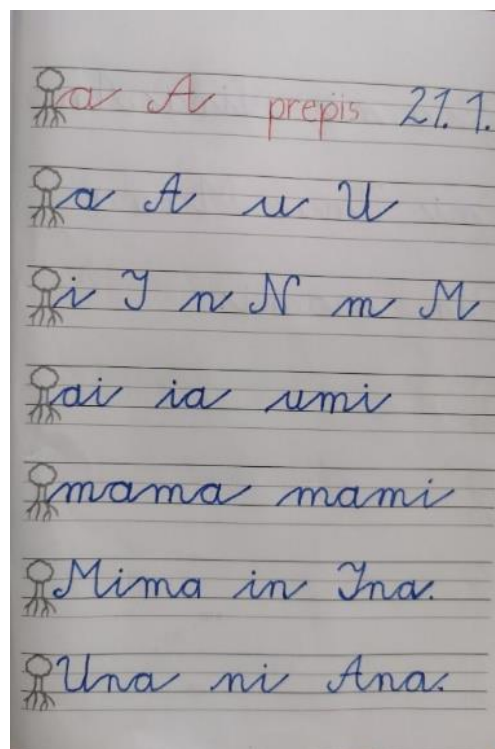 a A prepis 21. 1.
a A u U
i I n N m M
ai ia umi
mama mami
Mima in Ina.
Una ni Ana.